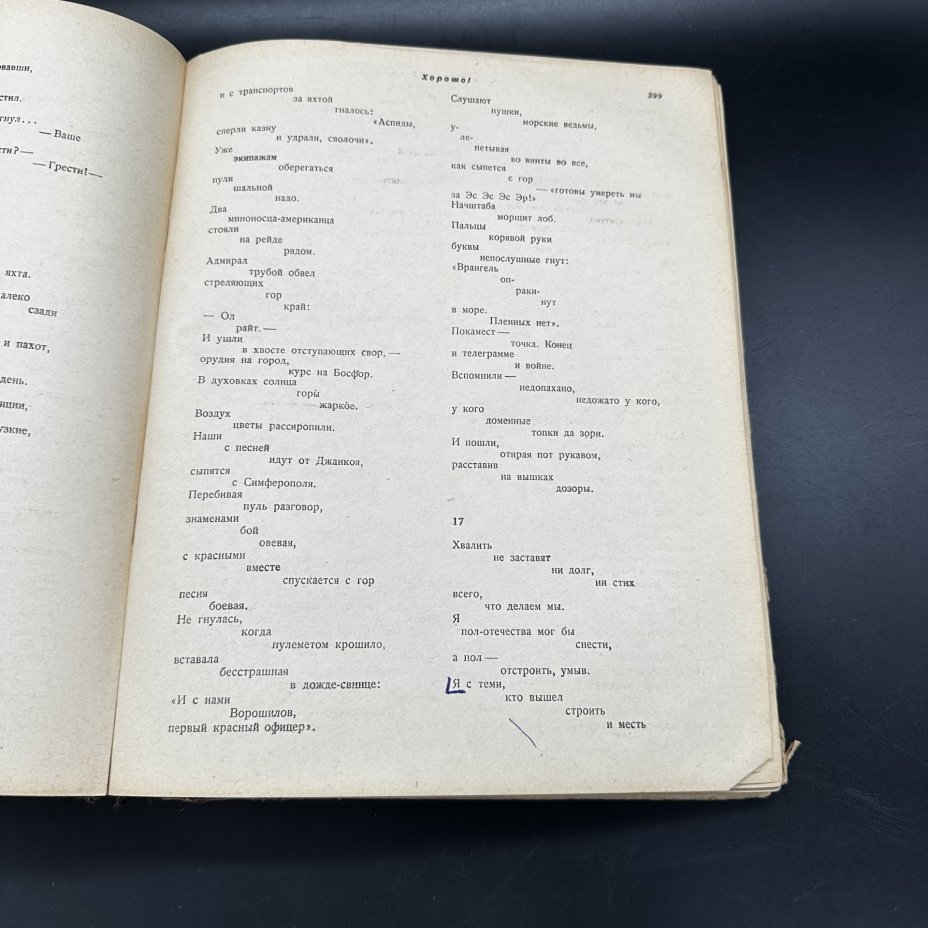 овавши,
стил.
гнул...
— Ваше
сти? —
— Грести! —
яхта.
алеко
сзади
и пахот,
день.
иции,
узкие,
Хорошо!
399
и с транспортов
за яхтой
гналось:
«Аспиды,
сперли казну
и удрали, сволочи».
Уже
экипажам
оберегаться
пули
шальной
надо.
Два
миноносца-американца
стояли
на рейде
рядом.
Адмирал
трубой обвел
стреляющих
гор
край:
— Ол
райт. —
И ушли
в хвосте отступающих свор, —
орудия на город,
курс на Босфор.
В духовках солнца
горы̀
жарко̀е.
Воздух
цветы рассиропили.
Наши
с песней
идут от Джанкоя,
сыпятся
с Симферополя.
Перебивая
пуль разговор,
знаменами
бой
овевая,
с красными
вместе
спускается с гор
песня
боевая.
Не гнулась,
когда
пулеметом крошило,
вставала
бесстрашная
в дожде-свинце:
«И с нами
Ворошилов,
первый красный офицер».
Слушают
пушки,
морские ведьмы,
у-
ле-
петывая
во винты во все,
как сыпется
с гор
— «готовы умереть мы
за Эс Эс Эс Эр!»
Начштаба
морщит лоб.
Пальцы
корявой руки
буквы
непослушные гнут:
«Врангель
оп-
раки-
нут
в море.
Пленных нет».
Покамест —
точка. Конец
и телеграмме
и войне.
Вспомнили —
недопахано,
недожато у кого,
у кого
доменные
топки да зори.
И пошли,
отирая пот рукавом,
расставив
на вышках
дозоры.
17
Хвалить
не заставят
ни долг,
ни стих
всего,
что делаем мы.
Я
пол-отечества мог бы
снести,
а пол —
отстроить, умыв.
Я с теми,
кто вышел
строить
и месть